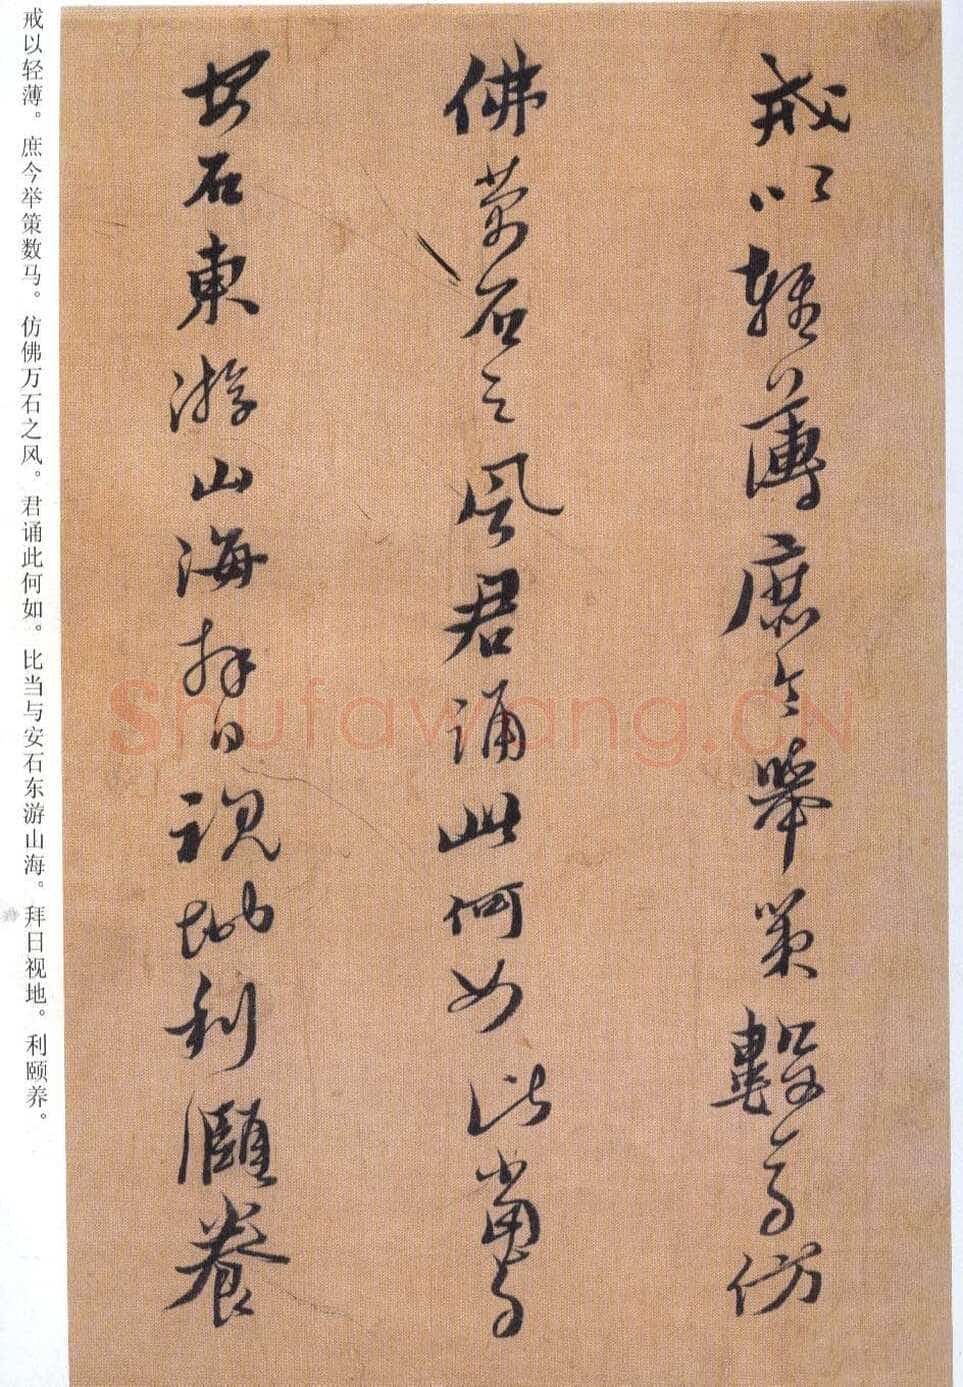 戒以轻薄。庶今举策数马。仿佛万石之风。君诵此何如。比当与安石东游山海。拜日视地。利颐养。
戒以軽薄庶今舉策數馬仿
佛萬石之風君誦此何如比當與
安石東游山海拜日視地利頤養
Shufawang.CN